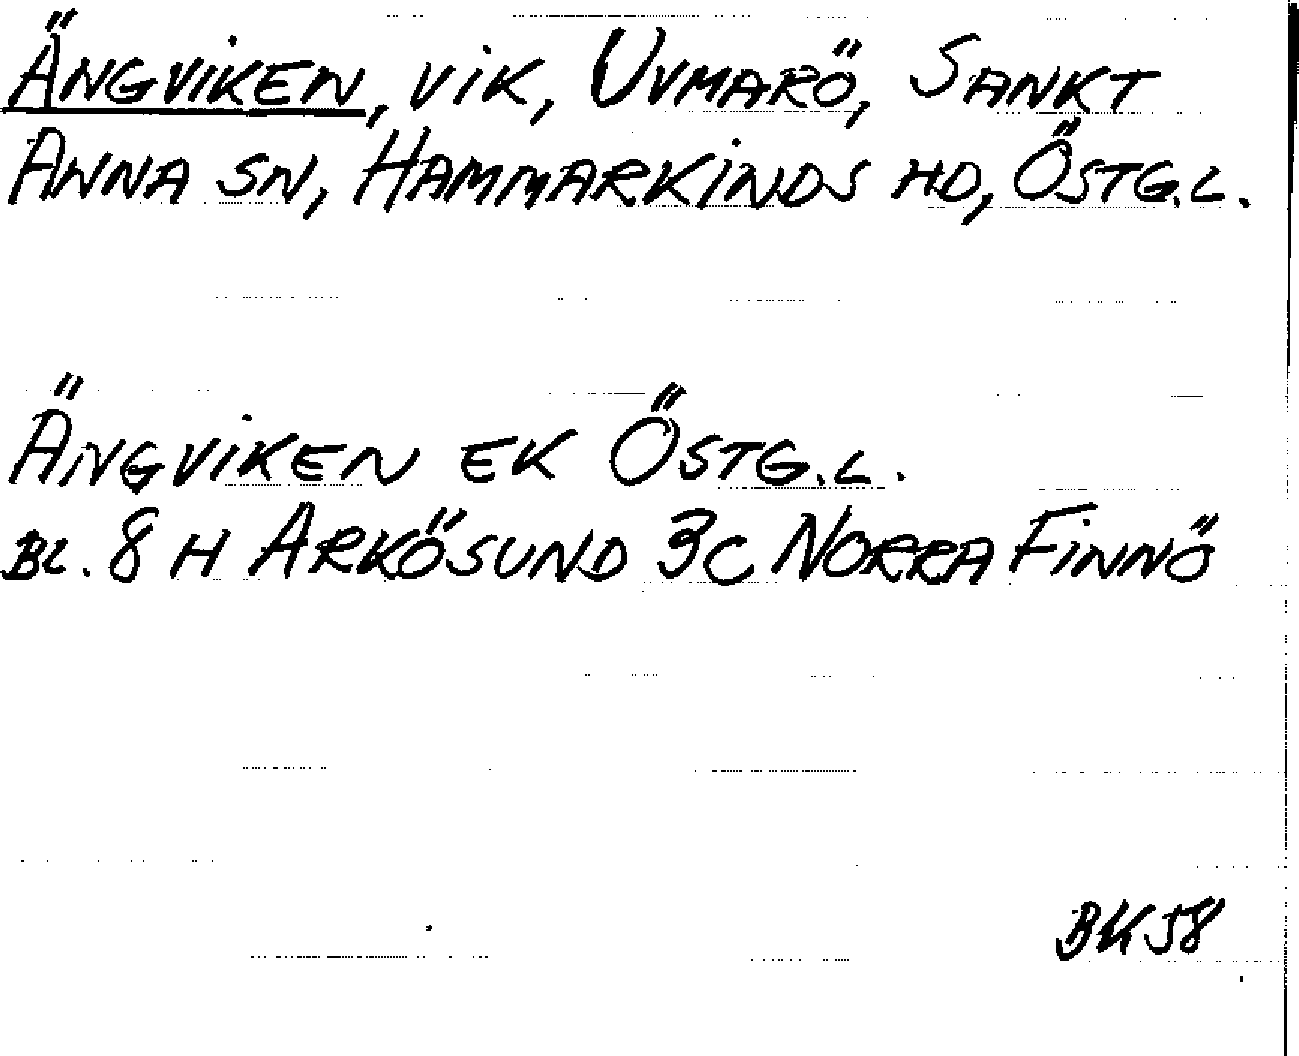 ÄNGVIKEN, VIK, UVMARÖ, SANKT
ANNA SN, HAMMARKINDS HD, ÖSTG.L.
ÄNGVIKEN EK ÖSTG.L.
BL. 8 H ARKÖSUND 3C NORRA FINNÖ
BK58